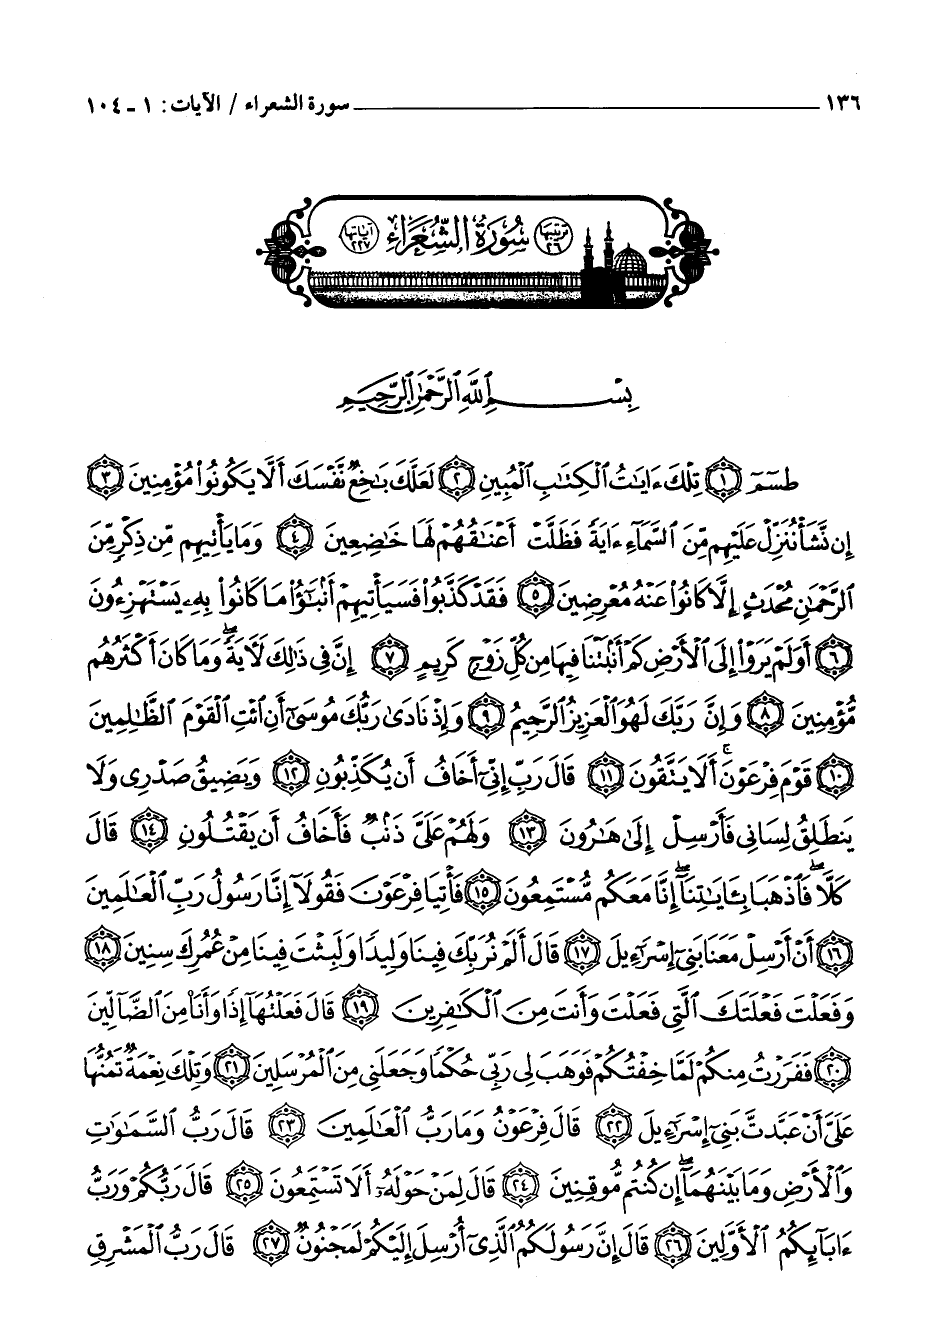 ١٣٦ سورة الشعراء / الآيات: ١ - ١٠٤
ترتيبها ٢٦ سُورَةُ الشُّعَرَاءِ آياتها ٢٢٧
بِسْمِ ٱللَّهِ ٱلرَّحْمَٰنِ ٱلرَّحِيمِ
طسٓمٓ ۝١ تِلْكَ ءَايَٰتُ ٱلْكِتَٰبِ ٱلْمُبِينِ ۝٢ لَعَلَّكَ بَٰخِعٌ نَّفْسَكَ أَلَّا يَكُونُوا۟ مُؤْمِنِينَ ۝٣
إِن نَّشَأْ نُنَزِّلْ عَلَيْهِم مِّنَ ٱلسَّمَآءِ ءَايَةً فَظَلَّتْ أَعْنَٰقُهُمْ لَهَا خَٰضِعِينَ ۝٤ وَمَا يَأْتِيهِم مِّن ذِكْرٍ مِّنَ
ٱلرَّحْمَٰنِ مُحْدَثٍ إِلَّا كَانُوا۟ عَنْهُ مُعْرِضِينَ ۝٥ فَقَدْ كَذَّبُوا۟ فَسَيَأْتِيهِمْ أَنۢبَٰٓؤُا۟ مَا كَانُوا۟ بِهِۦ يَسْتَهْزِءُونَ
۝٦ أَوَلَمْ يَرَوْا۟ إِلَى ٱلْأَرْضِ كَمْ أَنۢبَتْنَا فِيهَا مِن كُلِّ زَوْجٍ كَرِيمٍ ۝٧ إِنَّ فِى ذَٰلِكَ لَءَايَةً ۖ وَمَا كَانَ أَكْثَرُهُم
مُّؤْمِنِينَ ۝٨ وَإِنَّ رَبَّكَ لَهُوَ ٱلْعَزِيزُ ٱلرَّحِيمُ ۝٩ وَإِذْ نَادَىٰ رَبُّكَ مُوسَىٰٓ أَنِ ٱئْتِ ٱلْقَوْمَ ٱلظَّٰلِمِينَ
۝١٠ قَوْمَ فِرْعَوْنَ ۚ أَلَا يَتَّقُونَ ۝١١ قَالَ رَبِّ إِنِّىٓ أَخَافُ أَن يُكَذِّبُونِ ۝١٢ وَيَضِيقُ صَدْرِى وَلَا
يَنطَلِقُ لِسَانِى فَأَرْسِلْ إِلَىٰ هَٰرُونَ ۝١٣ وَلَهُمْ عَلَىَّ ذَنۢبٌ فَأَخَافُ أَن يَقْتُلُونِ ۝١٤ قَالَ
كَلَّا ۖ فَٱذْهَبَا بِـَٔايَٰتِنَآ ۖ إِنَّا مَعَكُم مُّسْتَمِعُونَ ۝١٥ فَأْتِيَا فِرْعَوْنَ فَقُولَآ إِنَّا رَسُولُ رَبِّ ٱلْعَٰلَمِينَ
۝١٦ أَنْ أَرْسِلْ مَعَنَا بَنِىٓ إِسْرَٰٓءِيلَ ۝١٧ قَالَ أَلَمْ نُرَبِّكَ فِينَا وَلِيدًا وَلَبِثْتَ فِينَا مِنْ عُمُرِكَ سِنِينَ ۝١٨
وَفَعَلْتَ فَعْلَتَكَ ٱلَّتِى فَعَلْتَ وَأَنتَ مِنَ ٱلْكَٰفِرِينَ ۝١٩ قَالَ فَعَلْتُهَآ إِذًا وَأَنَا۠ مِنَ ٱلضَّآلِّينَ
۝٢٠ فَفَرَرْتُ مِنكُمْ لَمَّا خِفْتُكُمْ فَوَهَبَ لِى رَبِّى حُكْمًا وَجَعَلَنِى مِنَ ٱلْمُرْسَلِينَ ۝٢١ وَتِلْكَ نِعْمَةٌ تَمُنُّهَا
عَلَىَّ أَنْ عَبَّدتَّ بَنِىٓ إِسْرَٰٓءِيلَ ۝٢٢ قَالَ فِرْعَوْنُ وَمَا رَبُّ ٱلْعَٰلَمِينَ ۝٢٣ قَالَ رَبُّ ٱلسَّمَٰوَٰتِ
وَٱلْأَرْضِ وَمَا بَيْنَهُمَآ ۖ إِن كُنتُم مُّوقِنِينَ ۝٢٤ قَالَ لِمَنْ حَوْلَهُۥٓ أَلَا تَسْتَمِعُونَ ۝٢٥ قَالَ رَبُّكُمْ وَرَبُّ
ءَابَآئِكُمُ ٱلْأَوَّلِينَ ۝٢٦ قَالَ إِنَّ رَسُولَكُمُ ٱلَّذِىٓ أُرْسِلَ إِلَيْكُمْ لَمَجْنُونٌ ۝٢٧ قَالَ رَبُّ ٱلْمَشْرِقِ